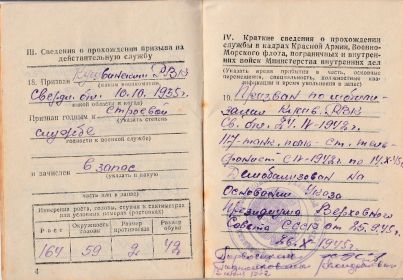 III. Сведения о прохождении призыва на
действительную службу
18. Призван Кушвинским РВК
Сверд. обл. 10.10.1935г.
какой области и когда
Признан годным к строевой
указать степень
службе
годности к военной службе
и зачислен в запас
указать в какую
часть или в запас
Измерения роста, головы, ступни в сантиметрах
или условных номерах (ростовках)
Рост Окружность головы Размер противогаза Размер обуви
164 59 2 42
4
IV. Краткие сведения о прохождении
службы в кадрах Красной Армии, Военно-
Морского флота, пограничных и внутрен-
них войск Министерства внутренних дел
(Указать время прибытия в часть, основные
перемещения, специальность, должностные
информации и время увольнения в запас)
19. Призван по мобили-
зации РВК
Св. обл. 1942г.
117 танк. полк ст. теле-
фонист с 1942г. по
Демобилизован на
Основании Указа
Президиума Верховного
Совета СССР от 25.9.45г.
26.X.1945г.